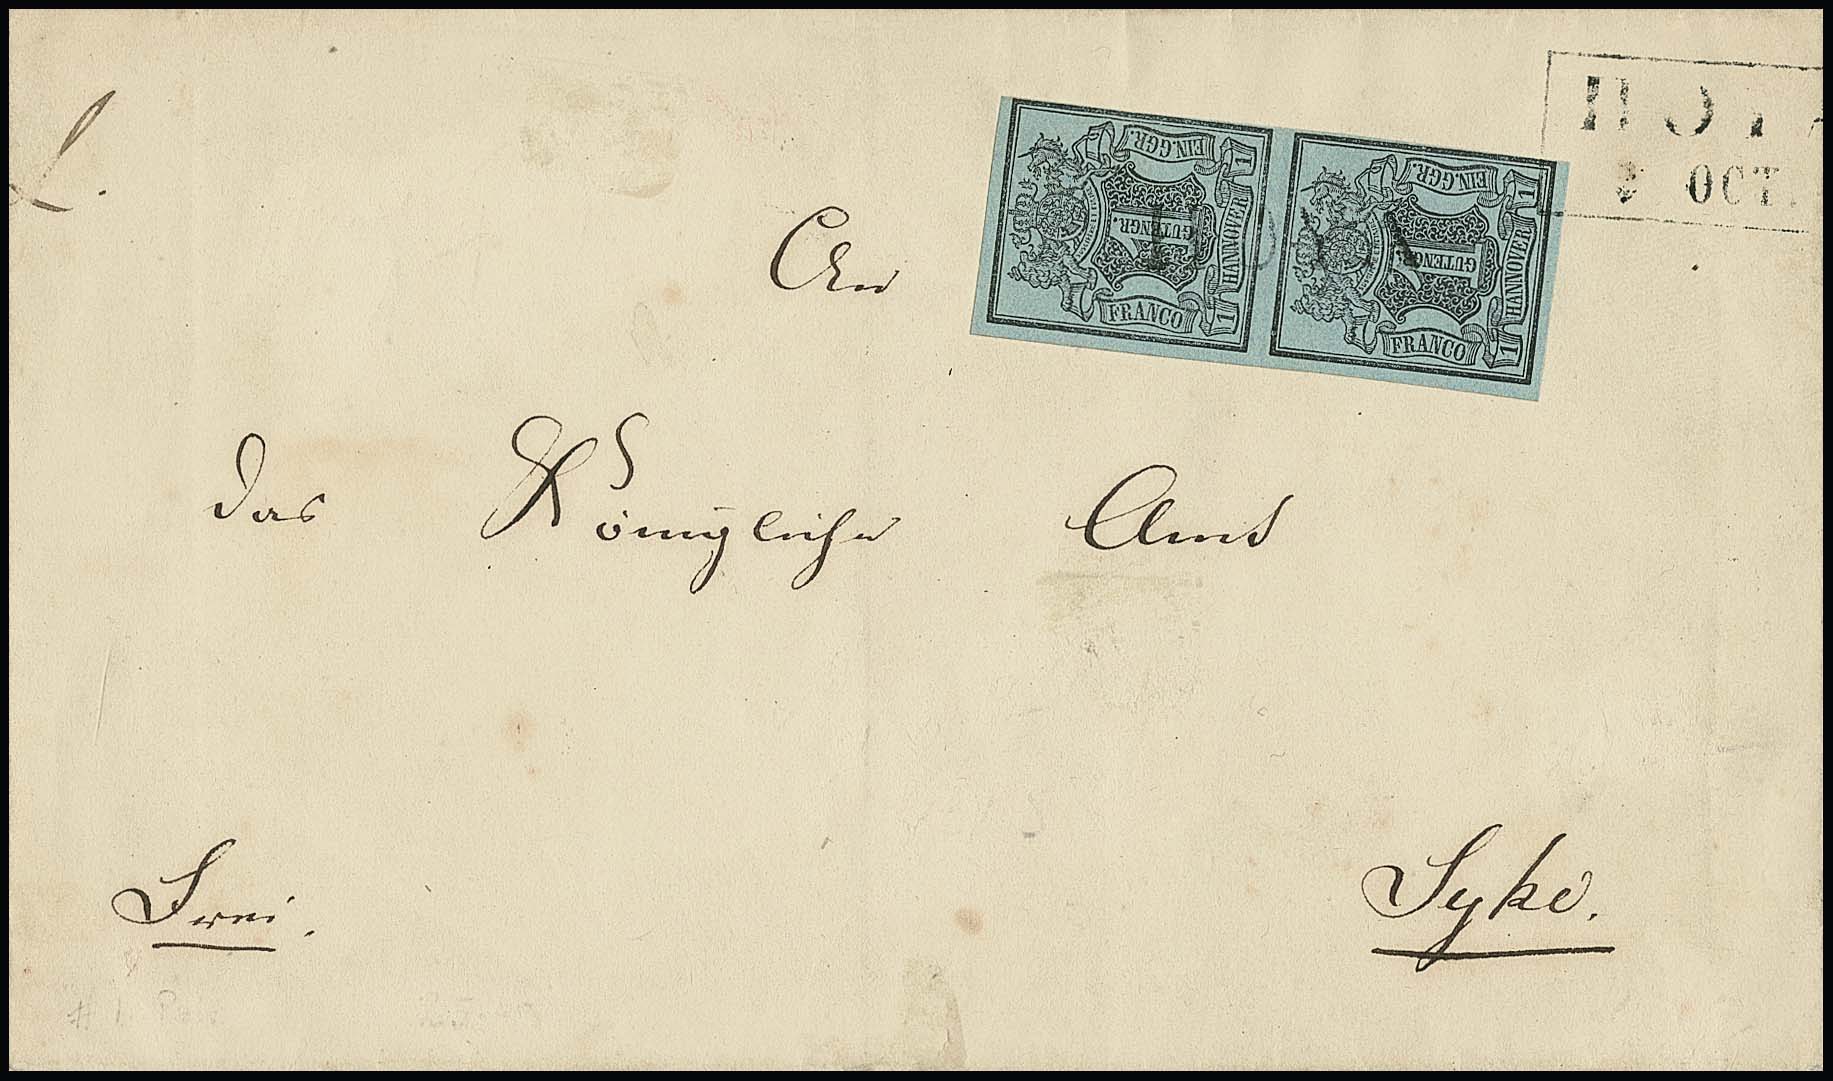 L.
HOYA
OCT.
EIN.GGR.
1 HANNOVER 1
1 GUTENGR.
FRANCO
EIN.GGR.
1 HANNOVER 1
1 GUTENGR.
FRANCO
An
das Königliche Amt
Frei.
Syke.